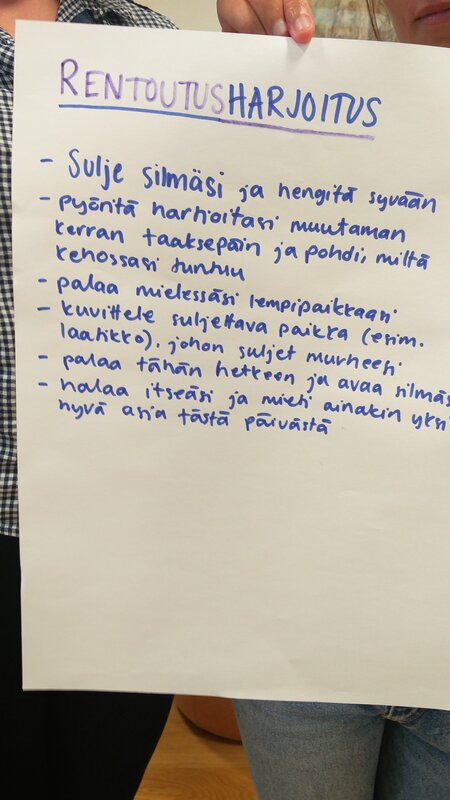 RENTOUTUSHARJOITUS
- Sulje silmäsi ja hengitä syvään
- pyöritä harhoitasi muutaman
kerran taaksepäin ja pohdi, miltä
kehossasi tuntuu
- palaa mielessäsi lempipaikkaasi
- kuvittele suljettava paikka (esim.
laatikko), johon suljet murheesi
- palaa tähän hetkeen ja avaa silmäs
- halaa itseäsi ja mieti ainakin yksi
hyvä asia tästä päivästä